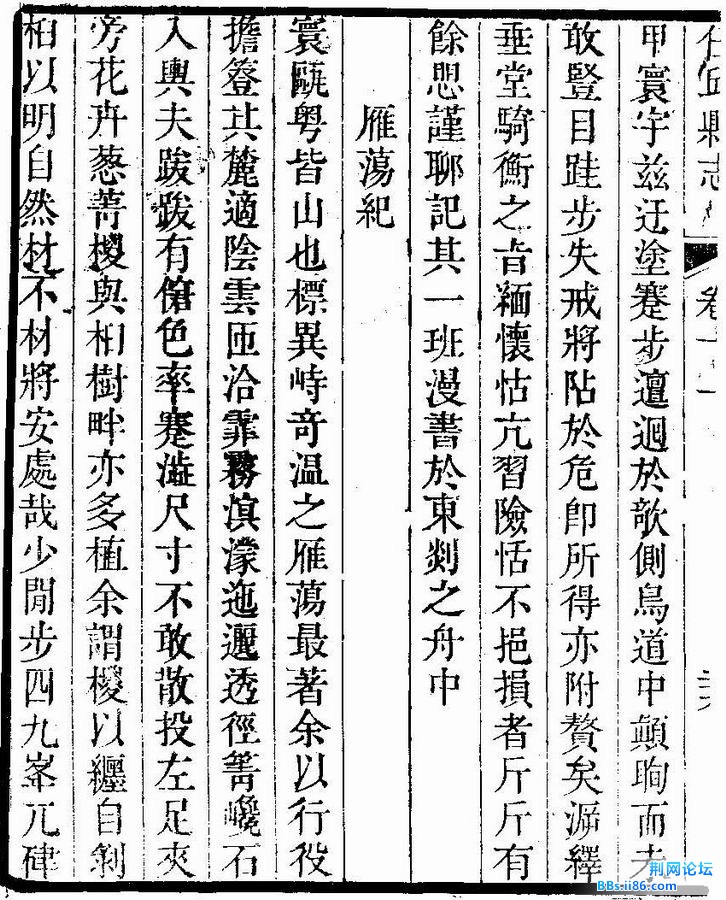 任丘縣志 卷十一
甲寰宇茲迂塗蹇步邅迴於欹側鳥道中顛眴而去
敢豎目跬步失戒將阽於危即所得亦附贅矣漏繹
垂堂騎衡之旨緬懷怙亢習險恬不挹損者斤斤有
餘思謹聊記其一班漫書於東剡之舟中
雁蕩紀
寰甌粵皆山也標異峙奇温之雁蕩最著余以行役
擔簦其麓適陰雲匝洽霏霧滇濛迤邐透徑箐巉石
入輿夫跋跋有傖色率蹇澁尺寸不敢散投左足夾
旁花卉葱菁椶與相樹畔亦多植余謂椶以纒自剝
相以明自然材不材將安處哉少閒步四九峯兀硉
荆网论坛
BBs.ii86.com